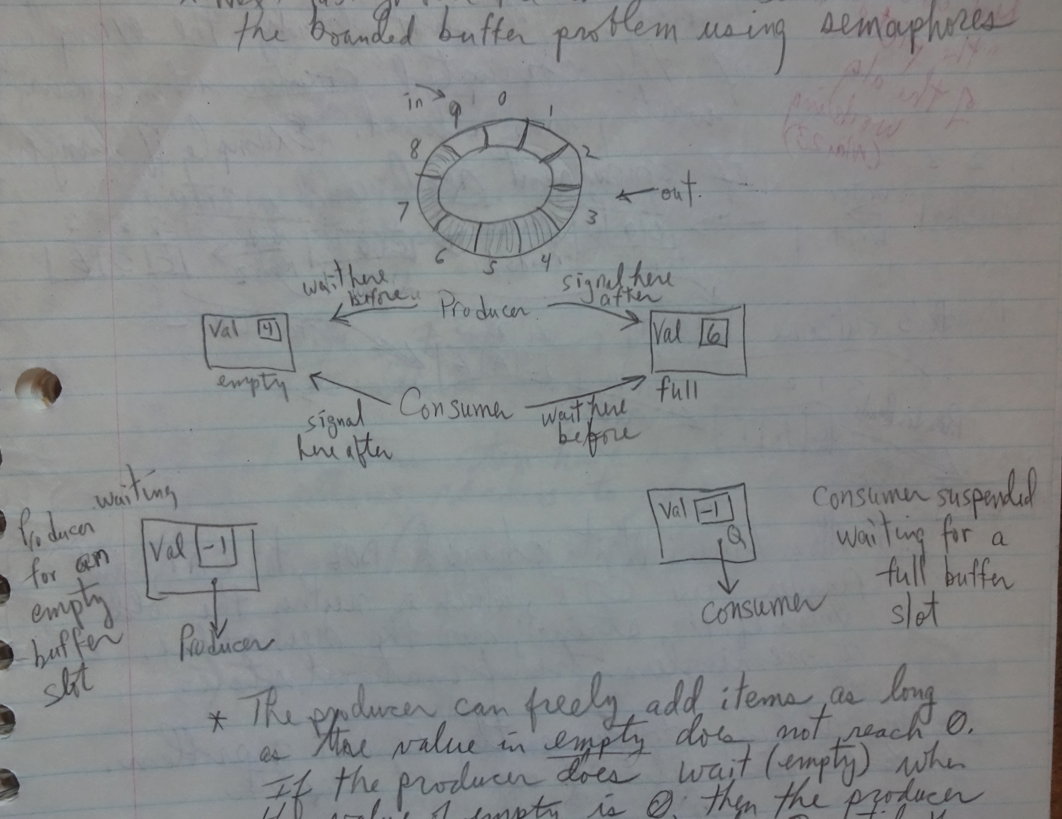 the bounded buffer problem using semaphores
in
9
0
1
8
2
out.
7
3
6
5
4
wait here
before
signal here
after
Producer
Val 4
Val 6
empty
full
Consumer
signal
here after
wait here
before
waiting
Producer
for an
empty
buffer
slot
Val -1
Producer
Val -1
Q
Consumer
Consumer suspended
waiting for a
full buffer
slot
* The producer can freely add items as long
as the value in empty does not reach 0.
If the producer does wait (empty) when
value of empty is 0, then the producer